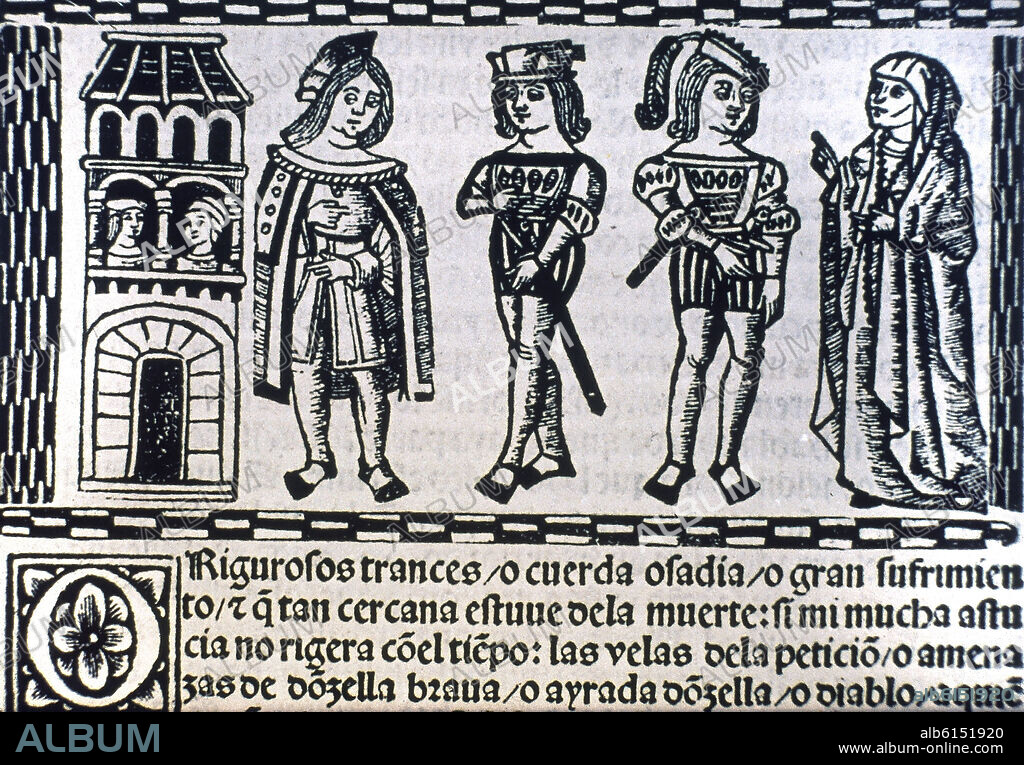 Rigurosos trances/o cuerda osadia/o gran sufrimien
to/⁊ q̃ tan cercana estuue dela muerte: si mi mucha astu
cia no rigera cõel tiẽpo: las velas dela peticiõ/o amena
zas de dõzella braua/o ayrada dõzella/o diablo/aquiẽ
alb6151920
ALBUM
alb6151920
www.album-online.com